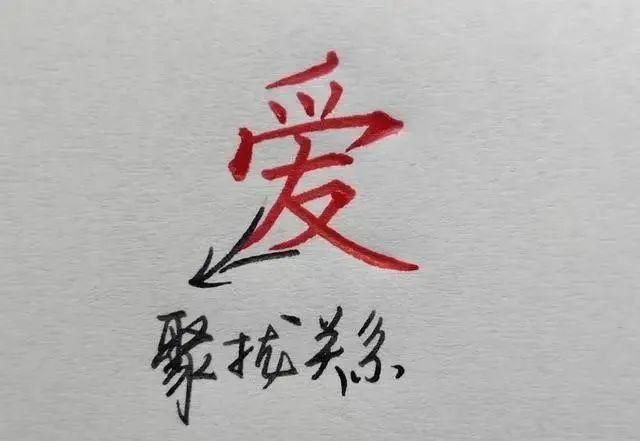 爱
聚拢关系